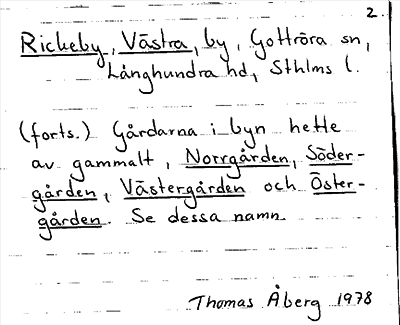 2.
Rickeby, Västra, by, Gottröra sn,
Långhundra hd, Sthlms l.
(forts.) Gårdarna i byn hette
av gammalt, Norrgården, Söder-
gården, Västergården och Öster-
gården. Se dessa namn.
Thomas Åberg 1978